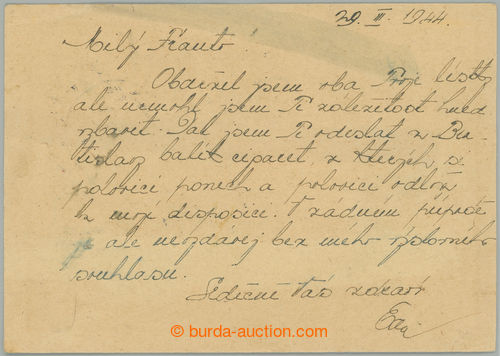 29. III. 1944.
Milý Franto!
Obdržel jsem oba Tvoje lístky
ale nemohl jsem Ti záležitost hned
zbavit. Dal jsem Ti odeslat z Bra-
tislavy balík cigaret, z kterých si
polovici ponech a polovici odlož
k mojí dispozici. V žádném případě
je ale nevydávej bez mého výslovného
souhlasu.
Srdečně Tás zdraví
Eda
© burda-auction.com